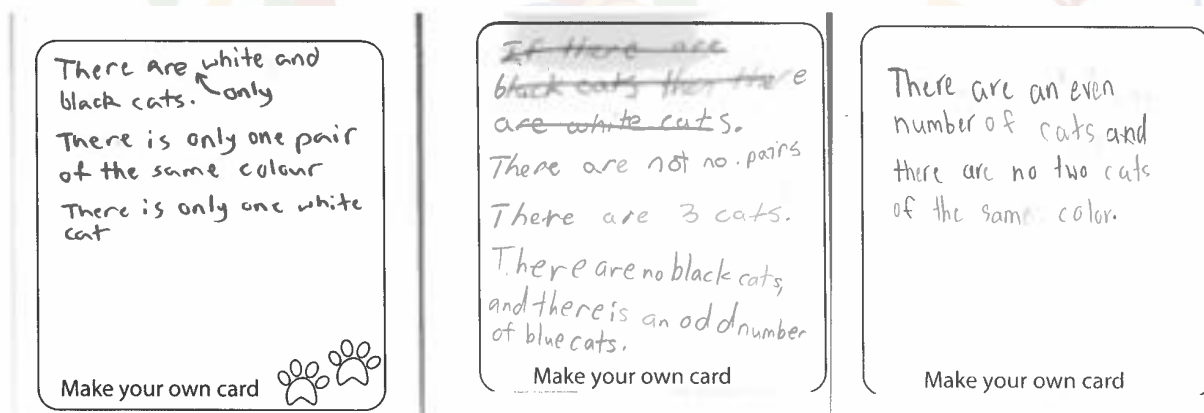 There are white and
only
black cats.
There is only one pair
of the same colour
There is only one white
cat
Make your own card
If there are
black cats then there
are white cats.
There are not no pairs
There are 3 cats.
There are no black cats,
and there is an odd number
of blue cats.
Make your own card
There are an even
number of cats and
there are no two cats
of the same color.
Make your own card